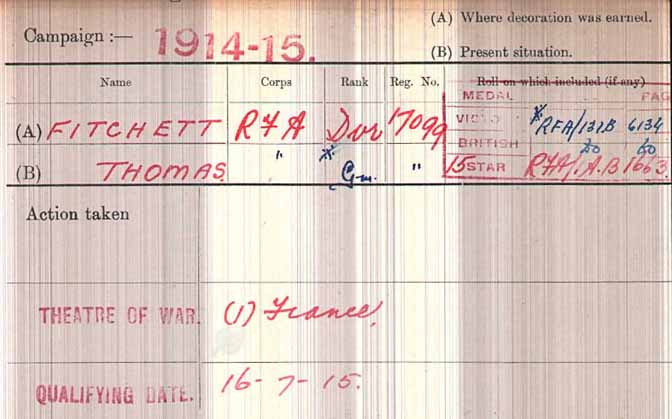 (A) Where decoration was earned.
Campaign :— 1914-15.
(B) Present situation.
Name Corps Rank Reg. No. Roll on which included (if any)
MEDAL PAG
(A) FITCHETT RFA Dvr 17099 VICTO RFA/131B 6134
BRITISH do do
(B) THOMAS. " Gnr. " 15 STAR RFA/ .A.B 1663.
Action taken
THEATRE OF WAR. (1) France.
QUALIFYING DATE. 16-7-15.